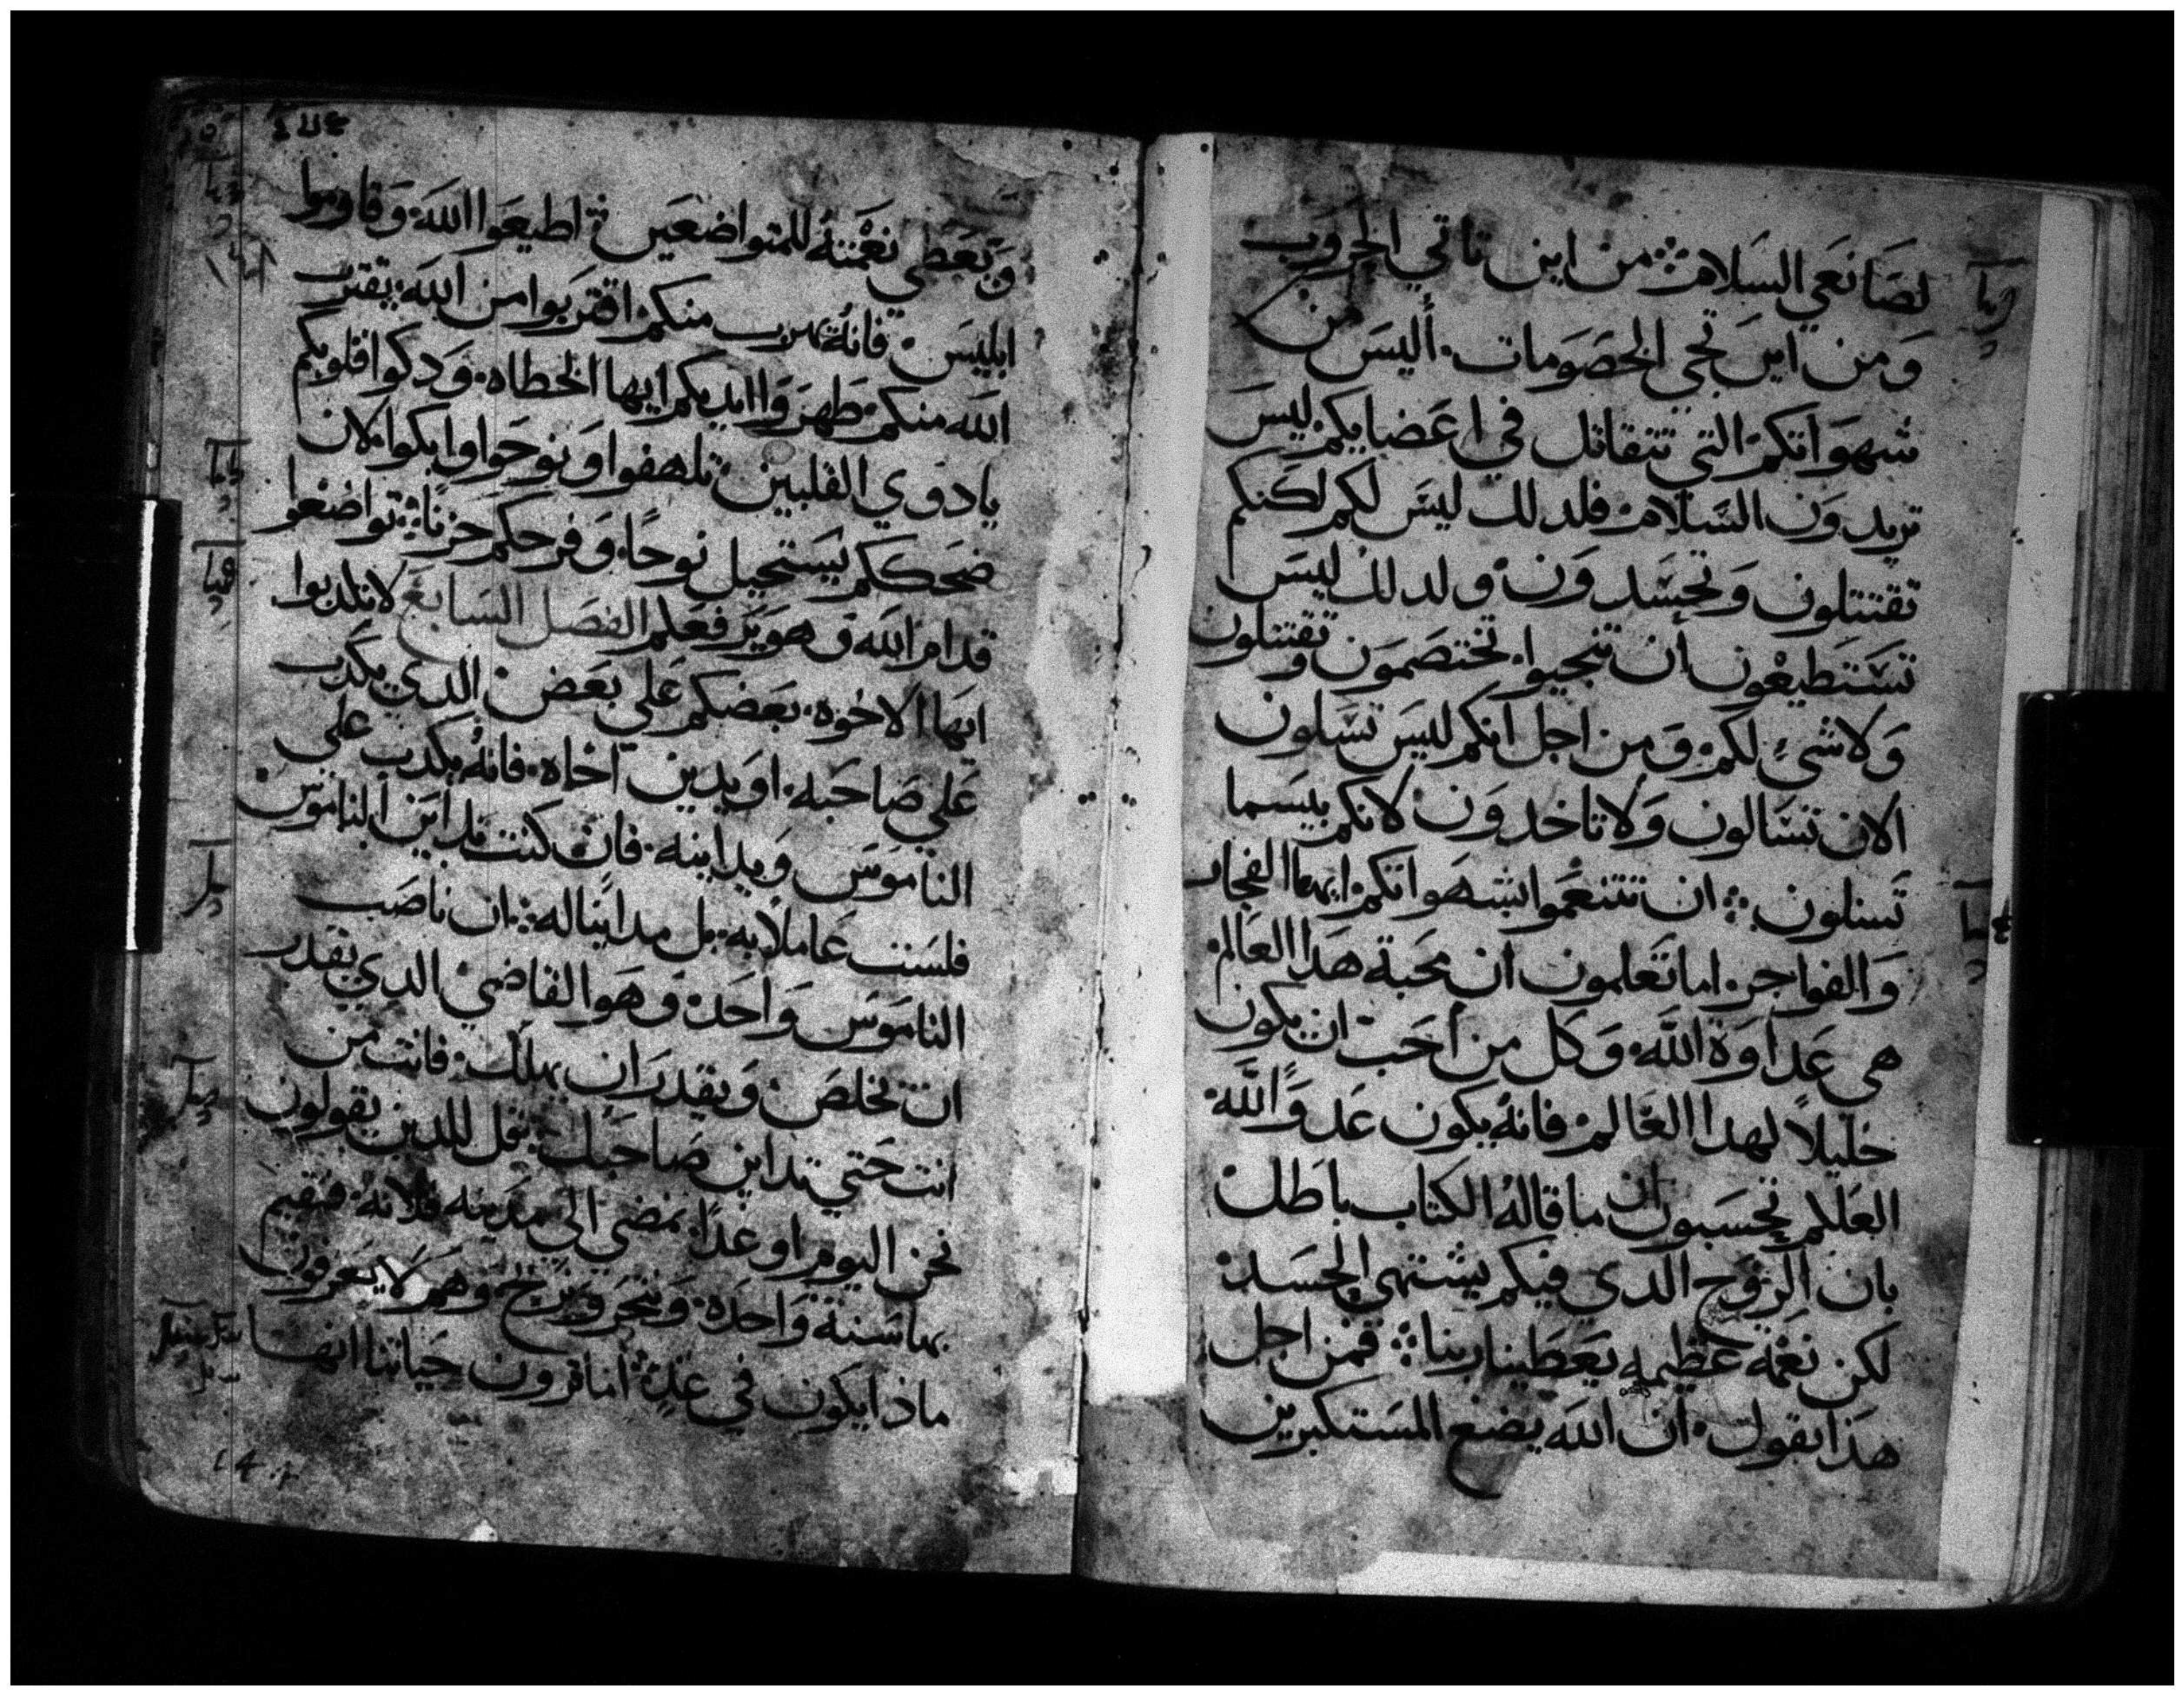 لصَانعَي السَلامۃ ⁘ من اين تاتي الحروب
وَمن اين تجي الخصَومات ٠ أليسَ من
شهوَاتكم التي تتقاتل في اعَضايكم ليسَ
تريدوَن السَلام فلدلك ليسَ لكم لكنكم
تقتتلون وَتحسَدوَن ولدلك ليسَ
تسَتطيعون أن تنجيوا ٠ تختصَمون وَتقتتلون
وَلاشيء لكم وَمن اجل انكم لليسَ تسَلون
الان تسَالون وَلاتاخدوَن لانكم بيسَما
تسَلون ⁘ ان تتنعَموا بشهوَاتكم ايها الفجار
وَالفواجر ٠ اما تعَلمون ان محبة هَدا العَالم
هي عَداوَة الله ٠ وَكل من احَب ان يكون
خليلاً لهدا العَالم فانه يكون عَدوَاً لله
العَلكم تحسَبون ان ما قاله الكتاب باطل
بان الروَح الدي فيكم يشتهي الحسَد
لكن نعَمة عَظيمه يعَطينا ربنا ⁘ فمن اجل
هدَا يقول ٠ ان الله يضع المسَتكبرين
وَيعَطي نعَمته للمتواضعَين اطيعَوا الله وَقاوموا
ابليسَ ٠ فانه يهرب منكم اقتربوا من الله يقترب
الله منكم طهروَا ايديكم ايها الخطاه ٠ وَدكوا قلوبكم
يادوي القلبين تلهفوا وَنوحَوا وابكوا لان
ضحَككم يسَتحيل نوحاً وَفرحكم حَزناً ⁘ تواضعوا
قدام الله وَهو يرفعَكم الفصَل السَابع لاتكدبوا
ايها الاخوه ٠ بعَضكم عَلي بعَض الدي يكدب
عَلي صَاحَبه ٠ او يدين اخاه ٠ فانه يكدب علي
النامَوسَ وَيداينه ٠ فان كنت تداين الناموسَ
فلسَت عَاملاً به ٠ بل مدايناً له ⁘ ان ناصَب
النامَوسَ وَاحَد وَهوَ القاضي الدي يقدر
ان يخلصَ وَيقدر ان يهلك ٠ فانت من
انت حَتي تداين صَاحَبك ⁘ قل للدين يقولون
نحن اليوم او غداً نمضي الي مدينه فلانه فنقيم
بها سَنة وَاحَده وَنتجر وَنربح وَهم لا يعَرفون
ماذا يكون في غد اما ترون حَياتنا انها